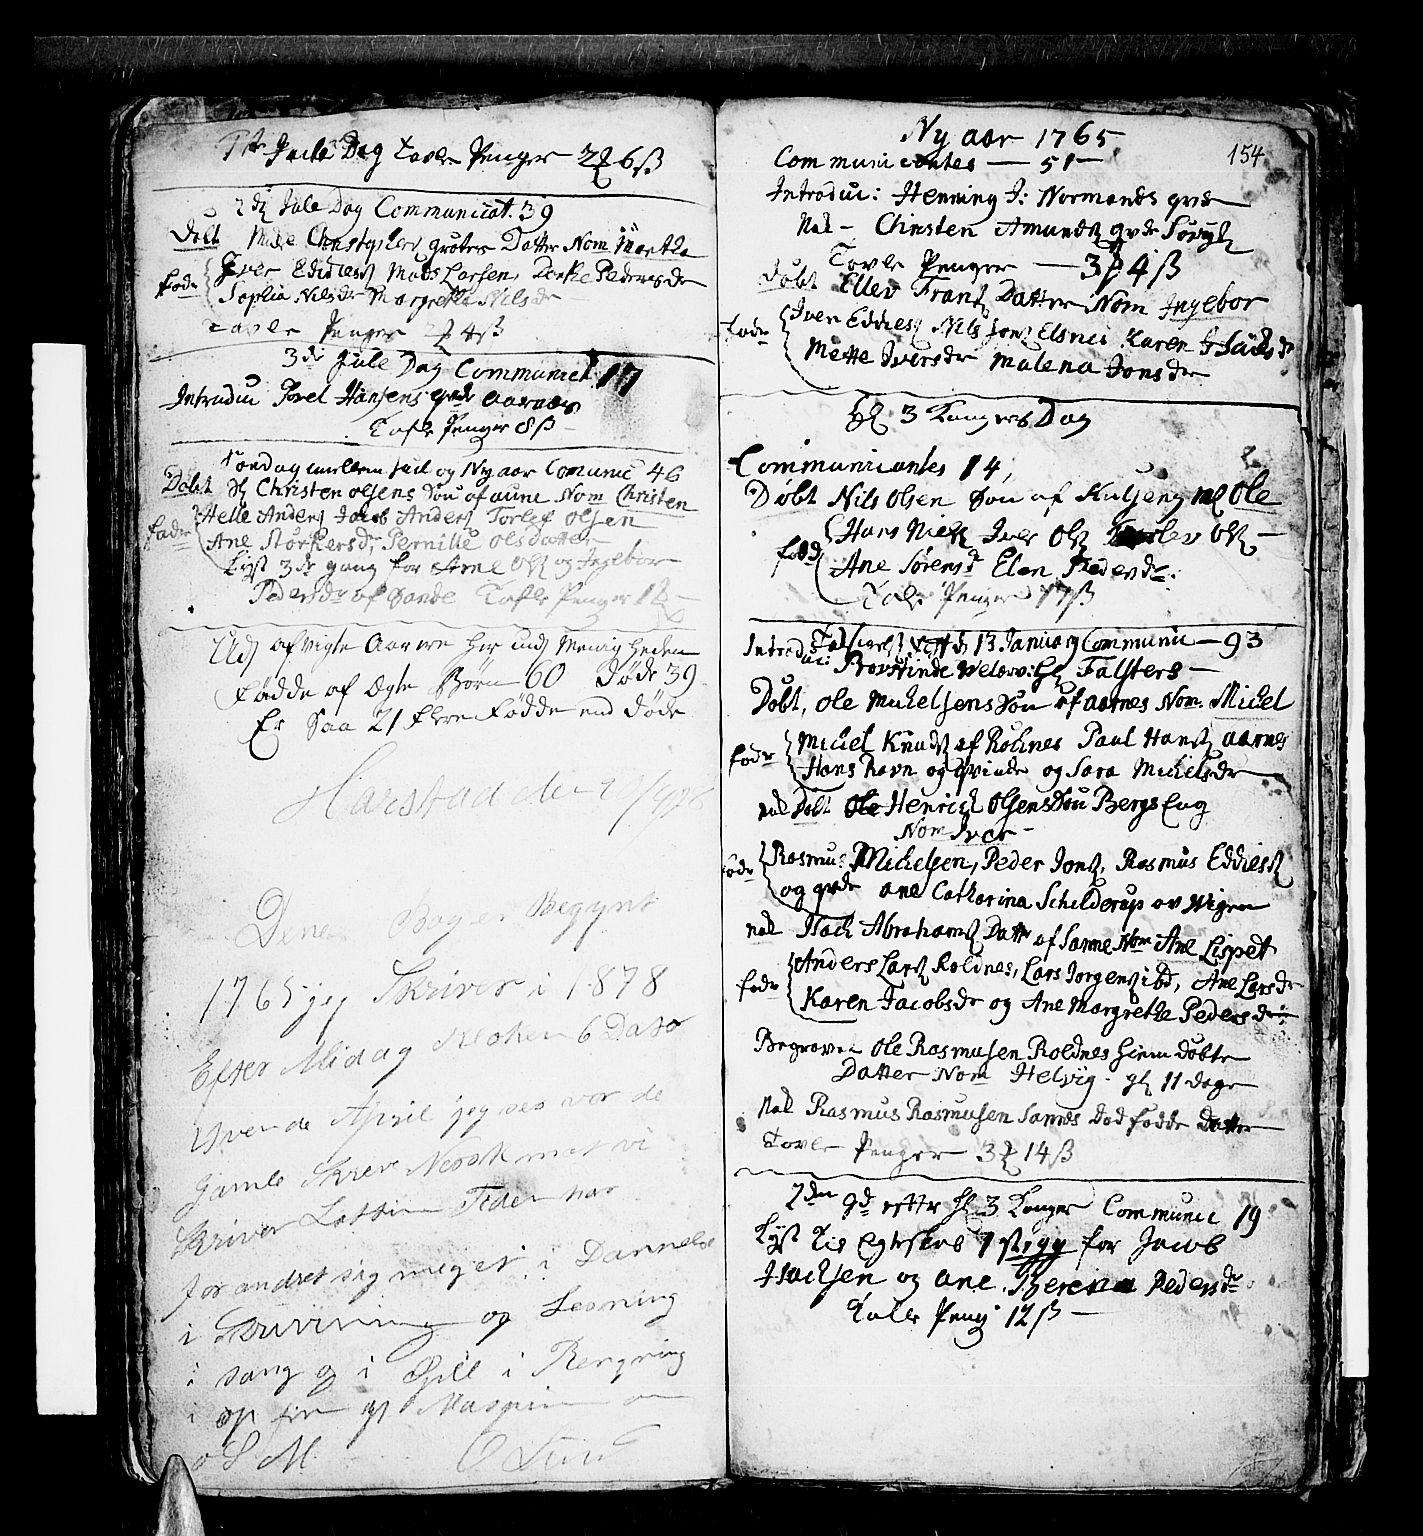 Jule Dag Tavle Penger 2 6 ß
2de Jule Dag Communicat. 39
Døbt Datter Nom Martha
fadr Iver Eddies Mads Larsen, Dorthe Pedersdr
Sophia Nilsdr Margretha Nilsdr
Tavle Penger 4 ß
3de Jule Dag Communicat 17
Introdu Povel Hansens qvde Aarnæs
Tafle Penger 8 ß
Søndag imellem Juel og Ny aar Comunic 46
Døbt Christen Olsens Søn af aune Nom Christen
fadr Helle Anders Jacob Anders Torlef Olsen
Ane Størkersdr, Pernille Olsdatter
Lyst 3de gang for Arne Ols og Ingebor
Pedersdr af Sande Tafle Penger 1
Udj afvigte Aar ere her udj Menigheden
Fødde af Ægte Børn 60 Døde 39
Er Saa 21 flere Fødde end Døde
Harstad den
Dene Bog er Begynt
1765 jeg Skriver i 1878
Efter Midag Kloken 6 Dato
de April jeg ser vor de
gamle Skrev Norsk mat vi
Skriver Lattin Tiden har
forandret sig meget i Dannelse
i Skrivning og Lesning
i sang og i Spill i Rengning
i op
O S M O Lund
Ny aar 1765
154
Communicantes — 51 —
Introduc: Henning J: Normands qvde
Nok – Christen Amunds qvde Sørvig
Tavle Penger — 3 4 ß
Døbt Ellev Frans Datter Nom Ingebor
fadr Iver Eddies Nils Jons Elsnes Karen Isachsdr
Mette Iversdr Malena Jonsdr
H 3 Kongers Dag
Communicantes 14,
Døbt Nils Olsen Søn af Kulseng n Ole
fadd Hans Niels Iver Ols Torlev Ols —
Ane Sørensd Elen Pedersdr.
Tafle Penger 17 ß
d 13 January Communic — 93
Introduc: Provstinde Welærv: Hr Falsters —
Døbt, Ole Michelsens Søn af aarnes Nom. Michel
fadr Michel Knuds af Rolnes Paul Hans aarnes
Hans Ravn og qvinde og Sara Michelsdr
nok Døbt Henrich Olsens Søn Bergs Eng
Nom Iver –
fadr Rasmus Michelsen, Peder Jons, Rasmus Eddies
og qvde ane Catharina Schelderup av Wigen
nok Isach Abrahams Dattr af Sanne Nom Ane Lispet
fadr Anders Lars Roldnes, Lars Jorgens ibd, Ane Larsdr
Karen Jacobsdr og Ane Margrethe Pedersdr
Begraven Ole Rasmusen Roldnes hiem døbte
Datter Nom Helvig. gl 11 dage
Nok Rasmus Rasmusen Sannes Død fødde Datter
Tavle Penger 3 14 ß
2den Sd efter H 3 Konger Communic 19
Lyst til Egteskab 1ste gg for Jacob
Isachsen og ane Berena Pedersdr
Tafle Peng 12 ß —